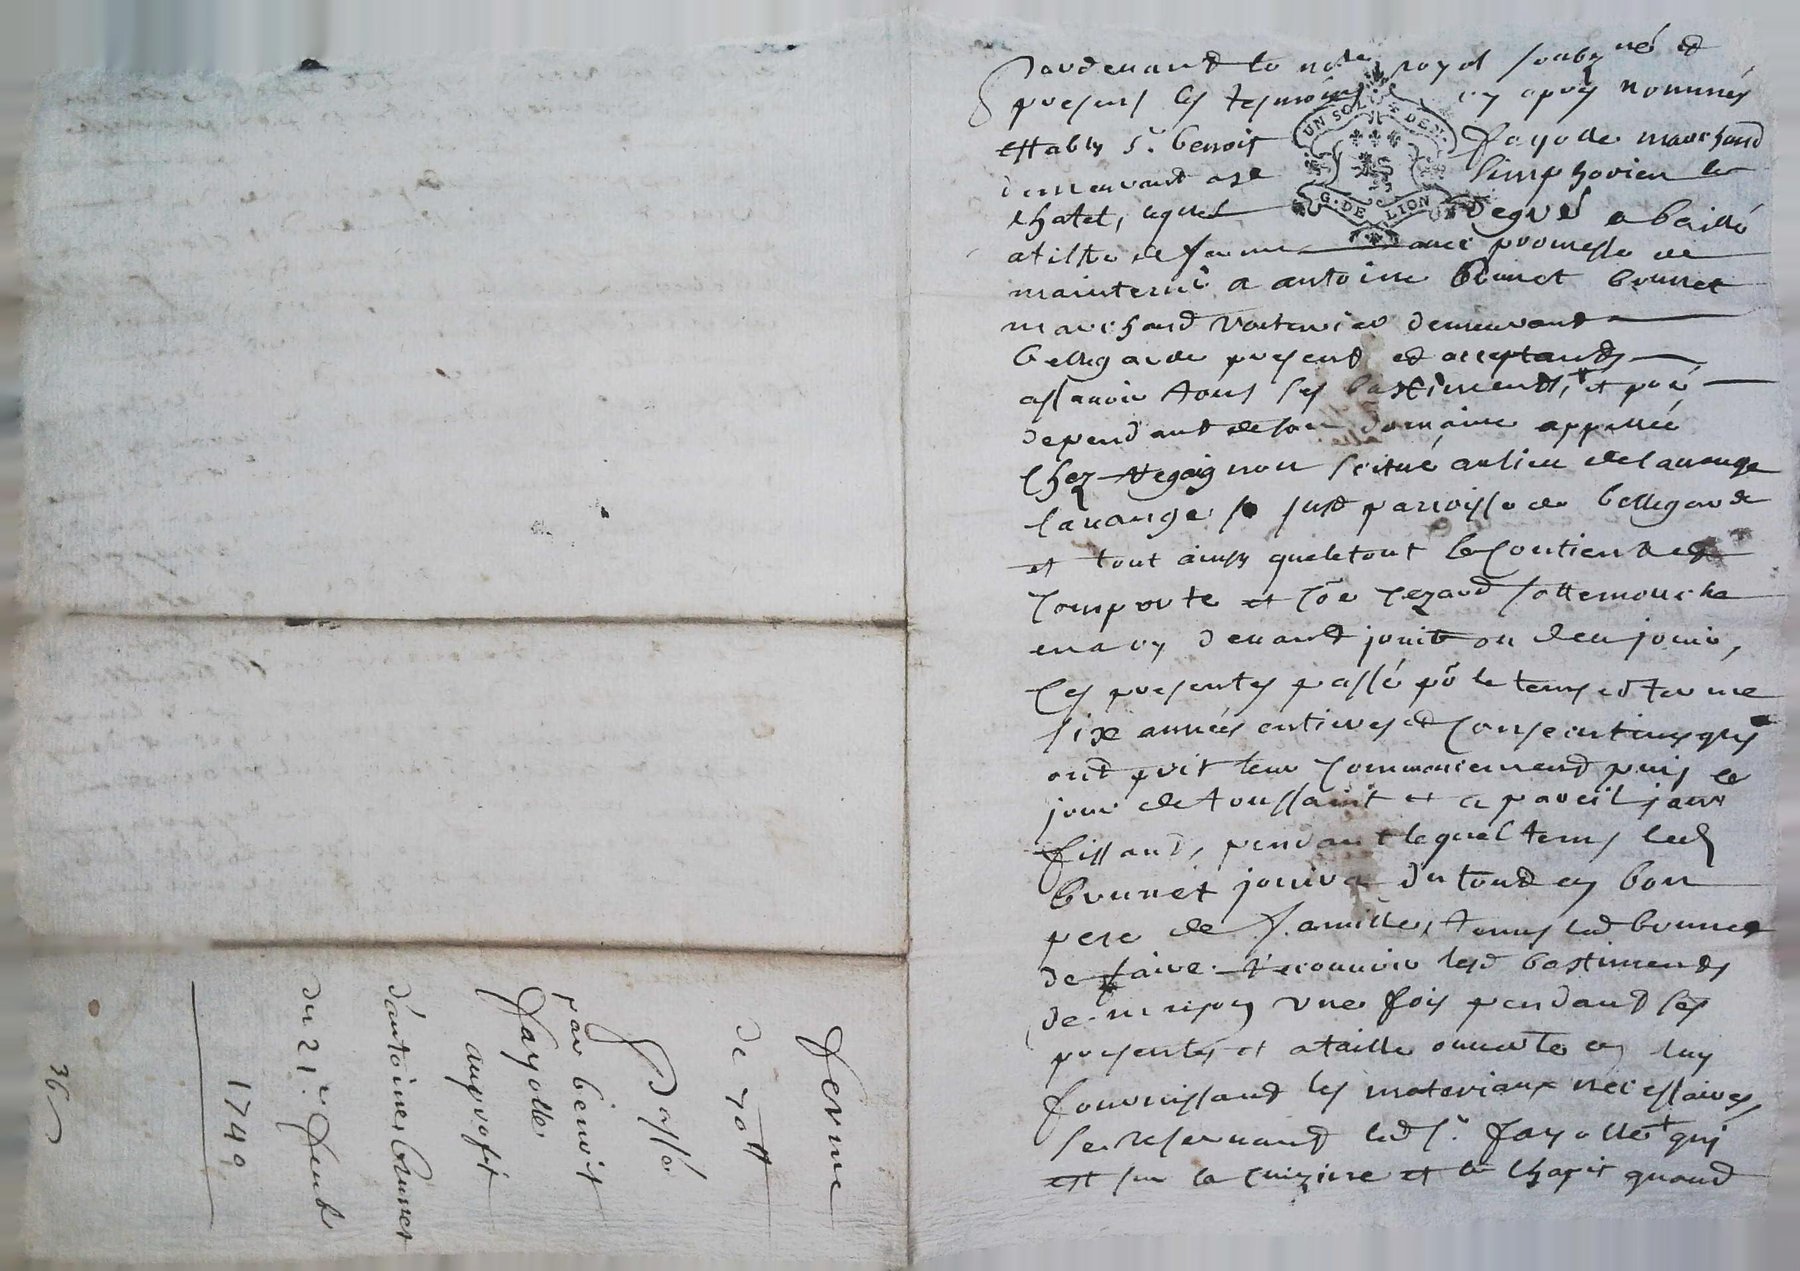 Pardevant le no.re royal soubz.né et
presens les tesmoins cy apres nommés
estably s.r benoit fayolle marchand
demeurant a st simphorien le
chatel, lequel degré a baillé
a tiltre de ferme avec promesse de
maintenir a antoine brunet
marchand voiturier demeurant
bellegarde present et acceptant
assavoir tous les bastiments, et
dependant de son domaine appellé
chez scitué au lieu de lavange
lavange st just parroisse de bellegarde
et tout ainsy que le tout se contient et
comporte et
en a cy devant jouit ou deu jouir,
ces presentes passé po.r le tems et terme
six années entieres et consecutives qui
ont prit leur commencement puis le
jour de toussaint et a pareil jour
finissant, pendant lequel tems led.
brunet jouira du tout en bon
pere de famille, tenus led brunet
de faire recouvrir lesd bastiments
de maison une fois pendant les
presentes et a taille ouverte en luy
fournissant les materiaux necessaires,
se reservant led s.r fayolle + qui
est sur la cuizine et le chapit quand
ferme
de 70 lt
Passé
par benoit
fayolle
au profit
d'antoine brunet
du 21.e
1749
36
UN SOL DEN
G. DE LION